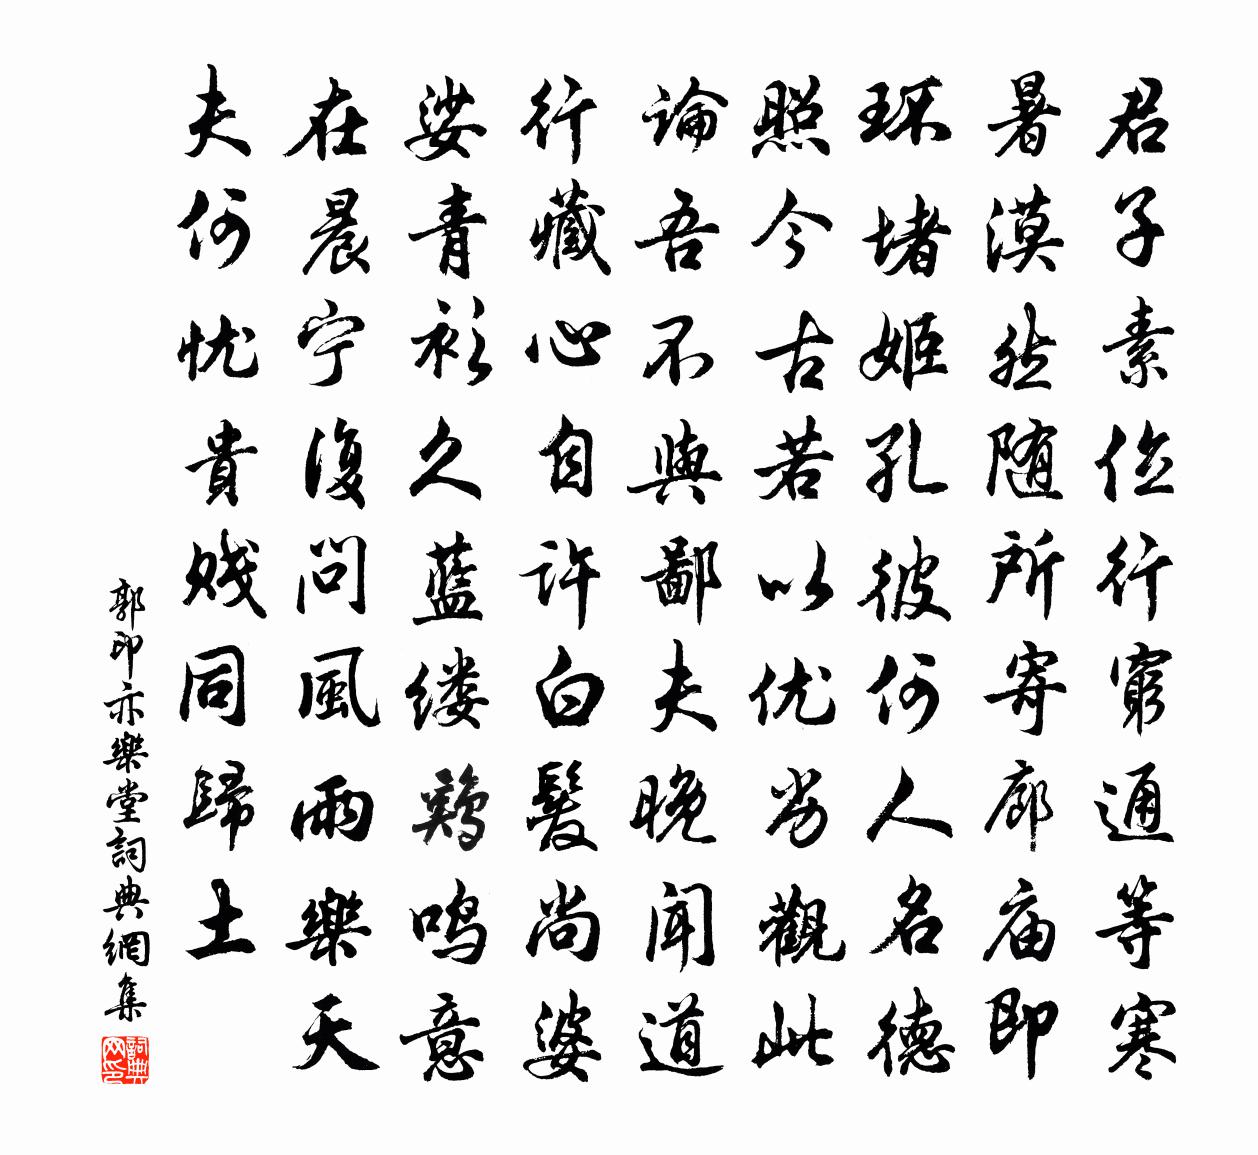 君子素位行窮通等寒
暑漠然随所寄廊庙即
环堵姬孔彼何人名德
照今古若以优劣觀此
論吾不與鄙夫晚聞道
行藏心自许白髮尚婆
娑青衫久藍缕鷄鸣意
在晨宁復问風雨樂天
夫何忧貴贱同歸土
郭印亦樂堂詞典網集
詞典网印